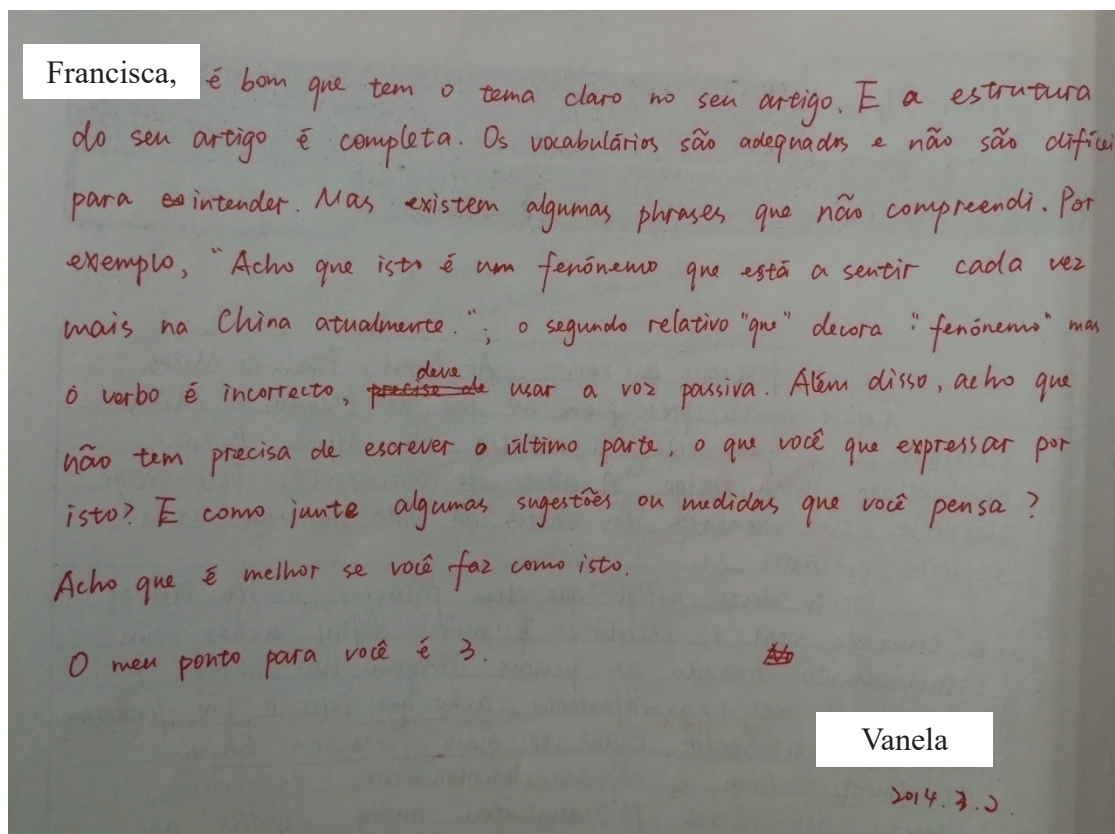 Francisca, é bom que tem o tema claro no seu artigo. E a estrutura
do seu artigo é completa. Os vocabulários são adequados e não são difícei
para intender. Mas existem algumas phrases que não compreendi. Por
exemplo, "Acho que isto é um fenónemo que está a sentir cada vez
mais na China atualmente.", o segundo relativo "que" decora "fenónemo" mas
o verbo é incorrecto, preciso de deve usar a voz passiva. Além disso, acho que
não tem precisa de escrever o último parte, o que você que expressar por
isto? E como junte algumas sugestões ou medidas que você pensa?
Acho que é melhor se você faz como isto.
O meu ponto para você é 3.
Vanela
2014.3.2.